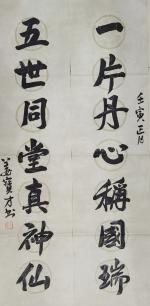 壬寅正月
一片丹心稱國瑞
五世同堂真神仙
姜寶才书